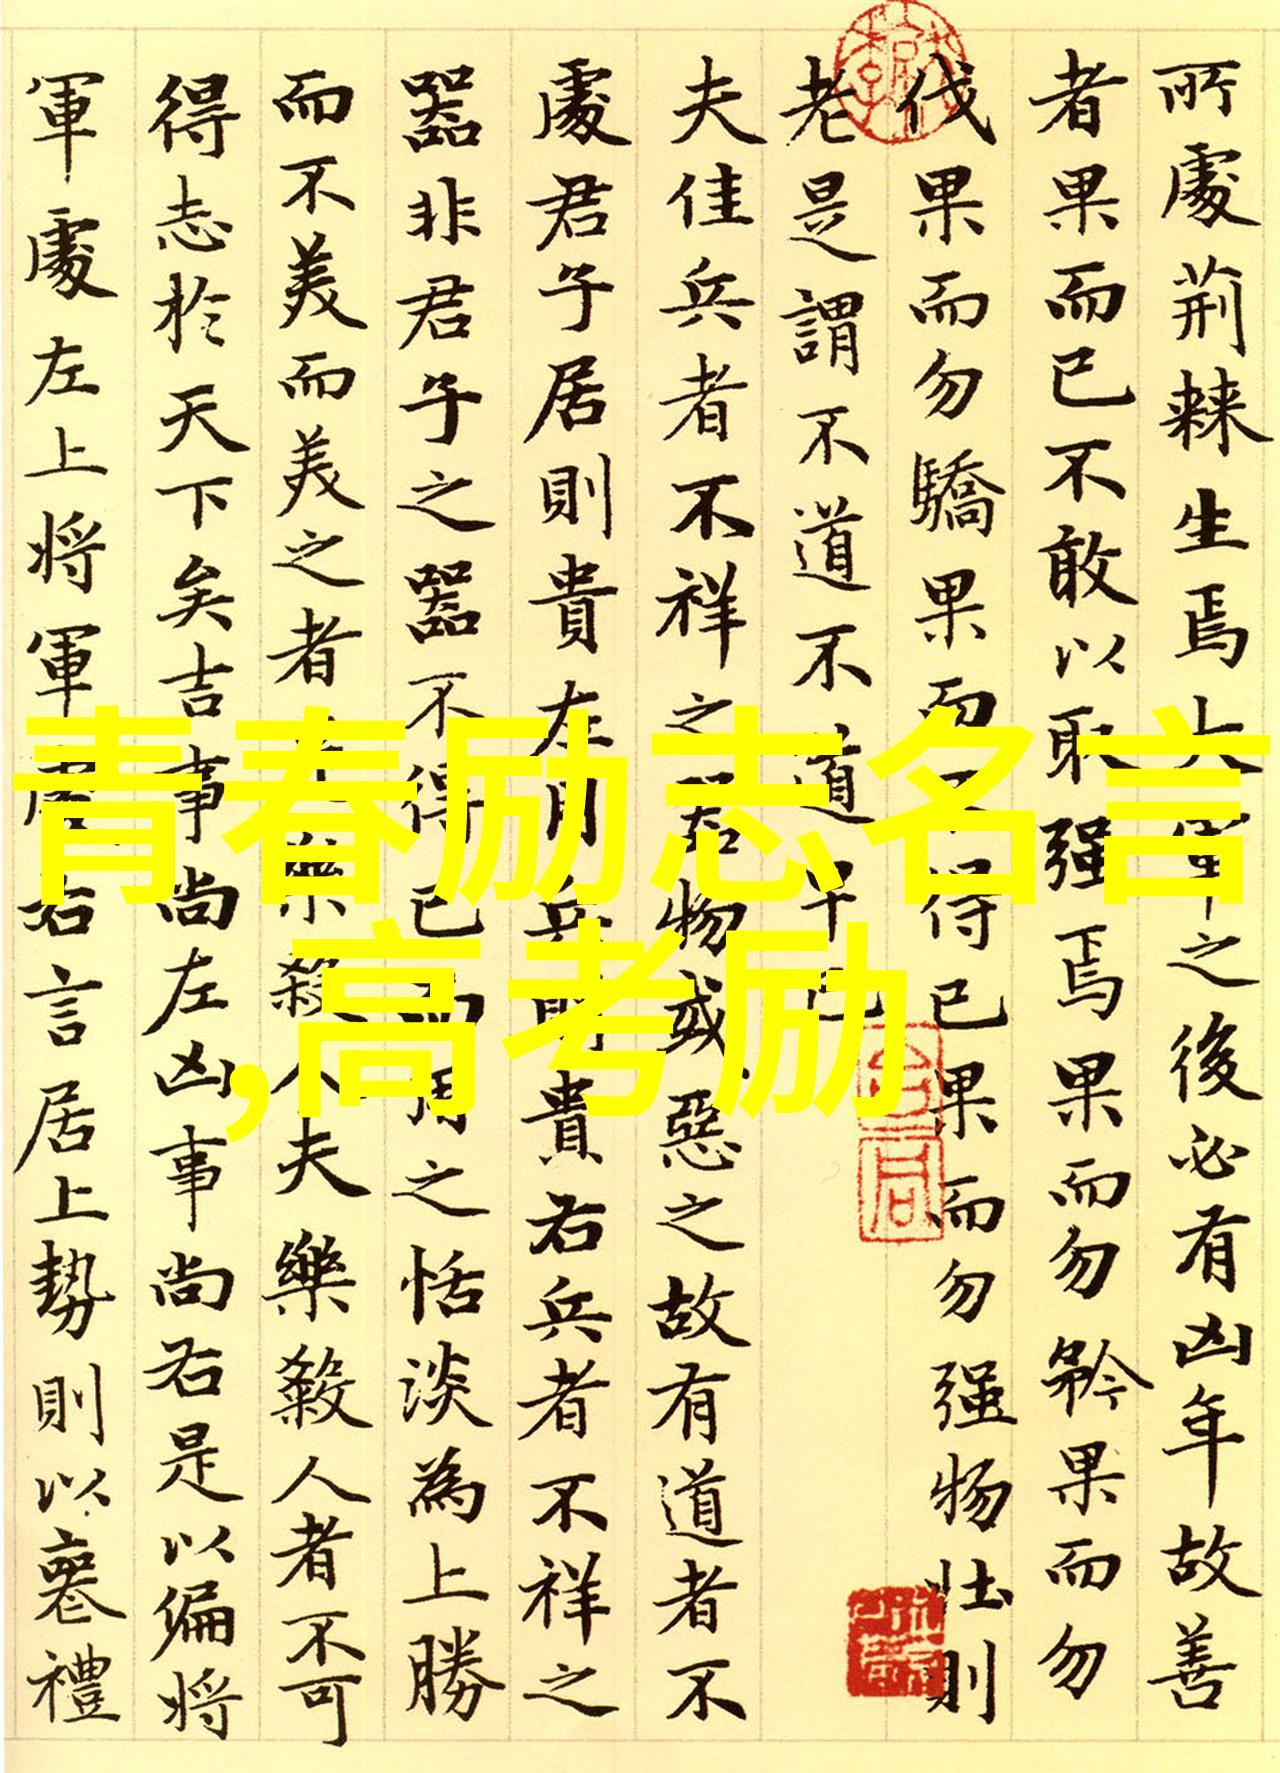 所處荊棘生焉大軍之後必有凶年故善
者果而已不敢以取强焉果而勿矜果而勿
伐果而勿驕果而不得已果而勿强物壯則
老是謂不道不道早已
夫佳兵者不祥之器物或惡之故有道者不
處君子居則貴左用兵則貴右兵者不祥之
器非君子之器不得已而用之恬淡為上勝
而不美而美之者是樂殺人夫樂殺人者不可
得志於天下矣吉事尚左凶事尚右是以偏將
軍處左上將軍處右言居上勢則以喪禮
青春励志名言
,高考励